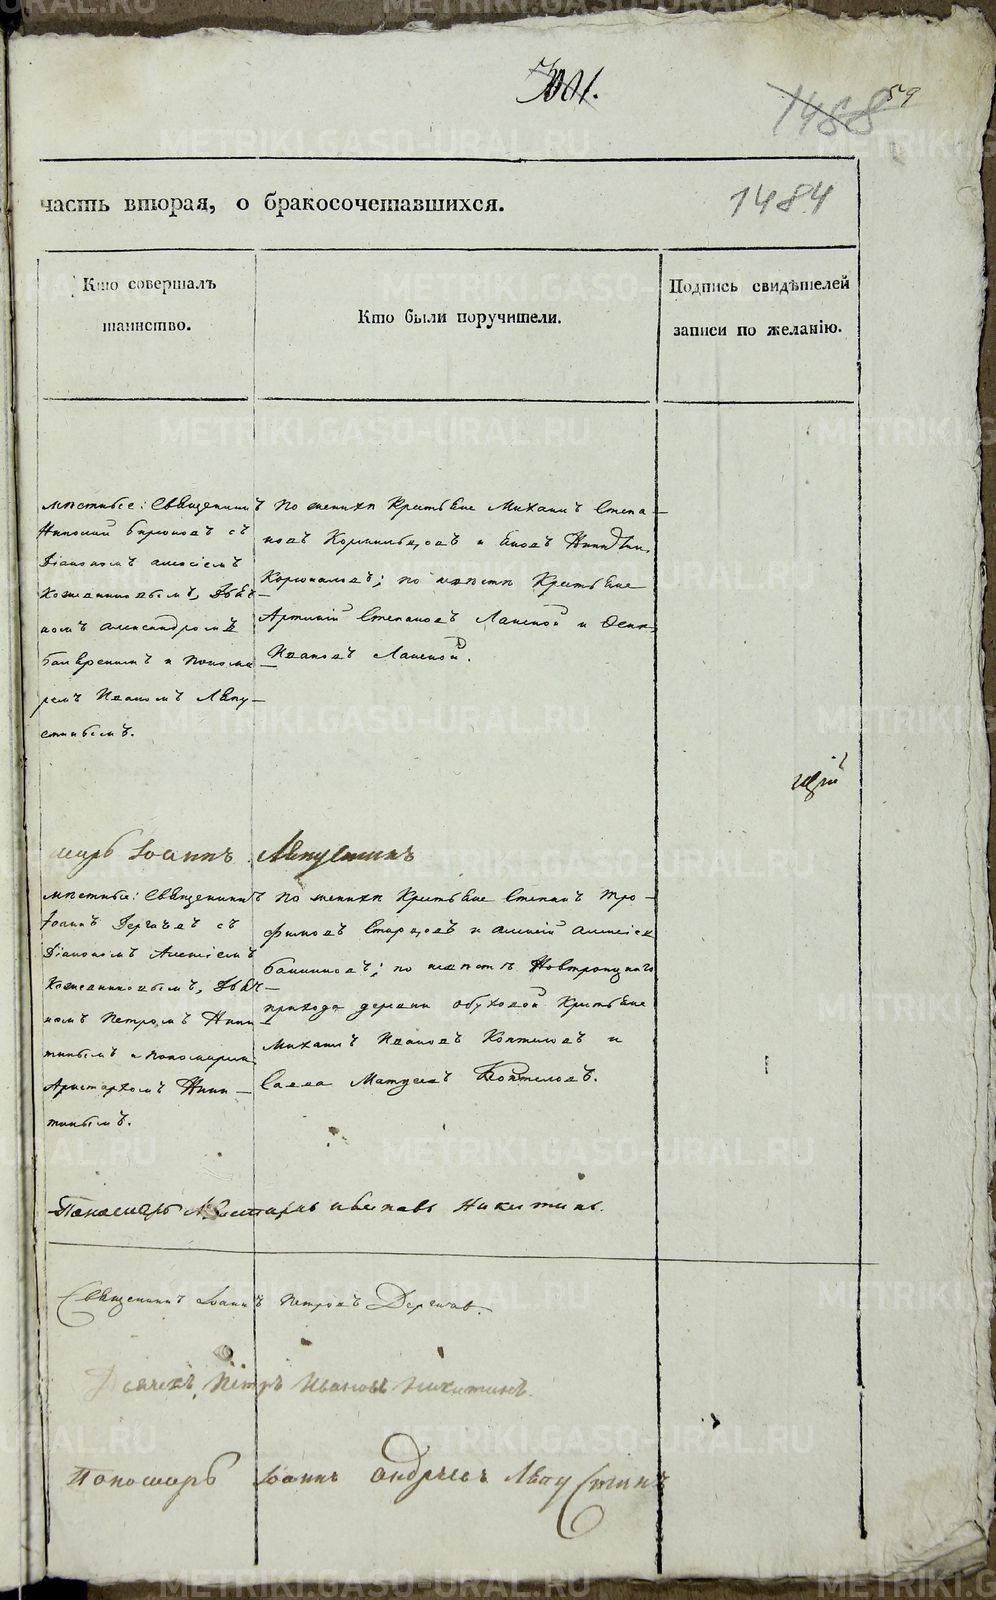 59
1488
1484
часть вторая, о бракосочетавшихся.
Кто совершалъ
таинство.
Кто были поручители.
Подпись свидѣтелей
записи по желанію.
мѣстные: Священникъ
Николай Бирюковъ съ
Діакономъ Алексіемъ
Кожевниковымъ, Дьяч-
комъ Александромъ
и Понома
ремъ Иваномъ Авгу-
стиновымъ.
По женихѣ Крестьяне Михаилъ Степа-
новъ и
по невѣстѣ Крестьяне
Артемій Степановъ Ланской и Осипъ
Ивановъ Ланской.
марь Іоаннъ Августинъ
мѣстные: Священникъ
Іоаннъ Дергачевъ съ
Діакономъ Алексіемъ
Кожевниковымъ, Дьяч-
комъ Петромъ Ники
тинымъ и пономаремъ
Аристархомъ Ники-
тинымъ.
По женихѣ Крестьяне Степанъ Тро-
фимовъ Старцовъ и Алексій Алексіевъ
по невѣстѣ
прихода деревни Обуховой Крестьяне
Михаилъ Ивановъ Коптеловъ и
Савва Матвеевъ Коптеловъ.
Пономарь Аристархъ Никитинъ.
Священникъ Іоаннъ Петровъ Дергачевъ.
Дьячекъ Петръ Ивановъ Никитинъ.
Пономарь Іоаннъ Андреевъ Августинъ
METRIKI.GASO-URAL.RU